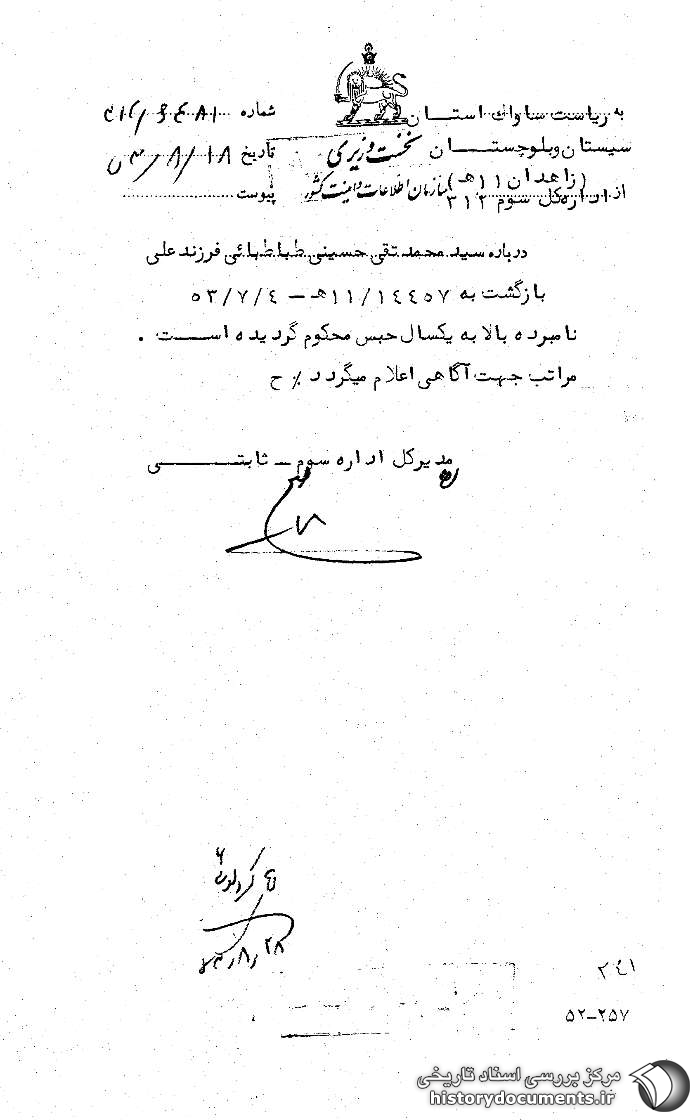 به ریاست ساواک استان
سیستان و بلوچستان
(زاهدان ۱۱ هـ)
از اداره کل سوم ۳۱۲
نخست وزیری
سازمان اطلاعات و امنیت کشور
شماره
تاریخ ۵۳/۸/۱۸
پیوست
درباره سید محمد تقی حسینی طباطبائی فرزند علی
بازگشت به ۱۱/۱۴۴۵۷ هـ – ۵۳/۷/۴
نامبرده بالا به یکسال حبس محکوم گردیده است .
مراتب جهت آگاهی اعلام میگردد٪ ح
مدیرکل اداره سوم – ثابتی
۲۴۱
۵۲-۲۵۷
مرکز بررسی اسناد تاریخی
historydocuments.ir